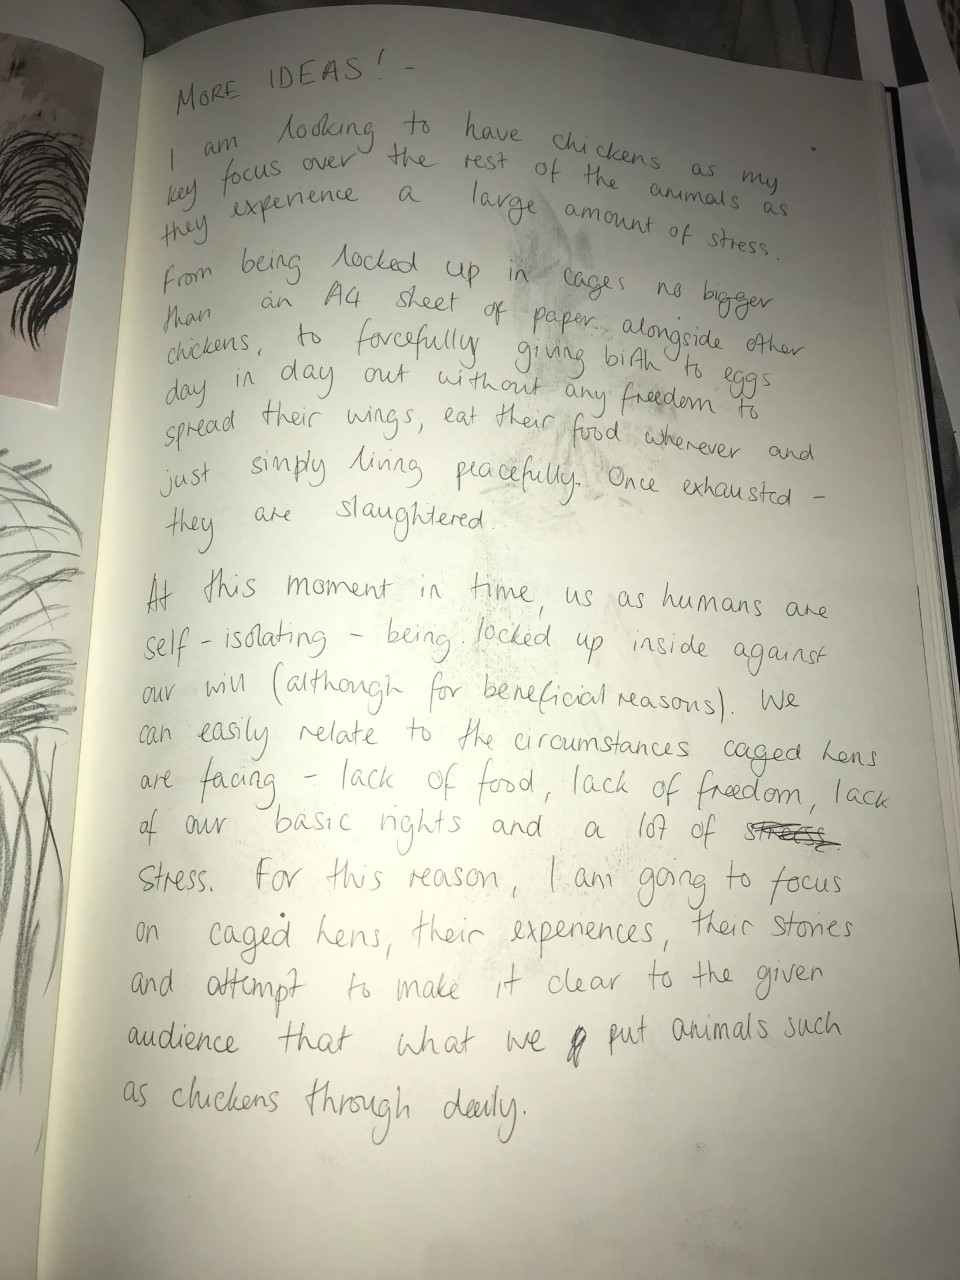 MORE IDEAS! -
I am looking to have chickens as my
key focus over the rest of the animals as
they experience a large amount of stress.
From being locked up in cages no bigger
than an A4 sheet of paper alongside other
chickens, to forcefully giving birth to eggs
day in day out without any freedom to
spread their wings, eat their food wherever and
just simply living peacefully. Once exhausted -
they are slaughtered.
At this moment in time, us as humans are
self-isolating - being locked up inside against
our will (although for beneficial reasons). We
can easily relate to the circumstances caged hens
are facing - lack of food, lack of freedom, lack
of our basic rights and a lot of stress
stress. For this reason, I am going to focus
on caged hens, their experiences, their stories
and attempt to make it clear to the given
audience that what we put animals such
as chickens through daily.